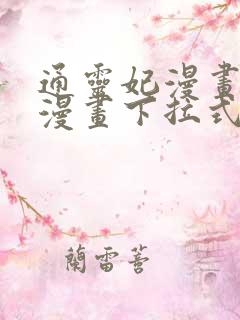 通靈妃漫畫
漫畫下拉式
蘭雷著